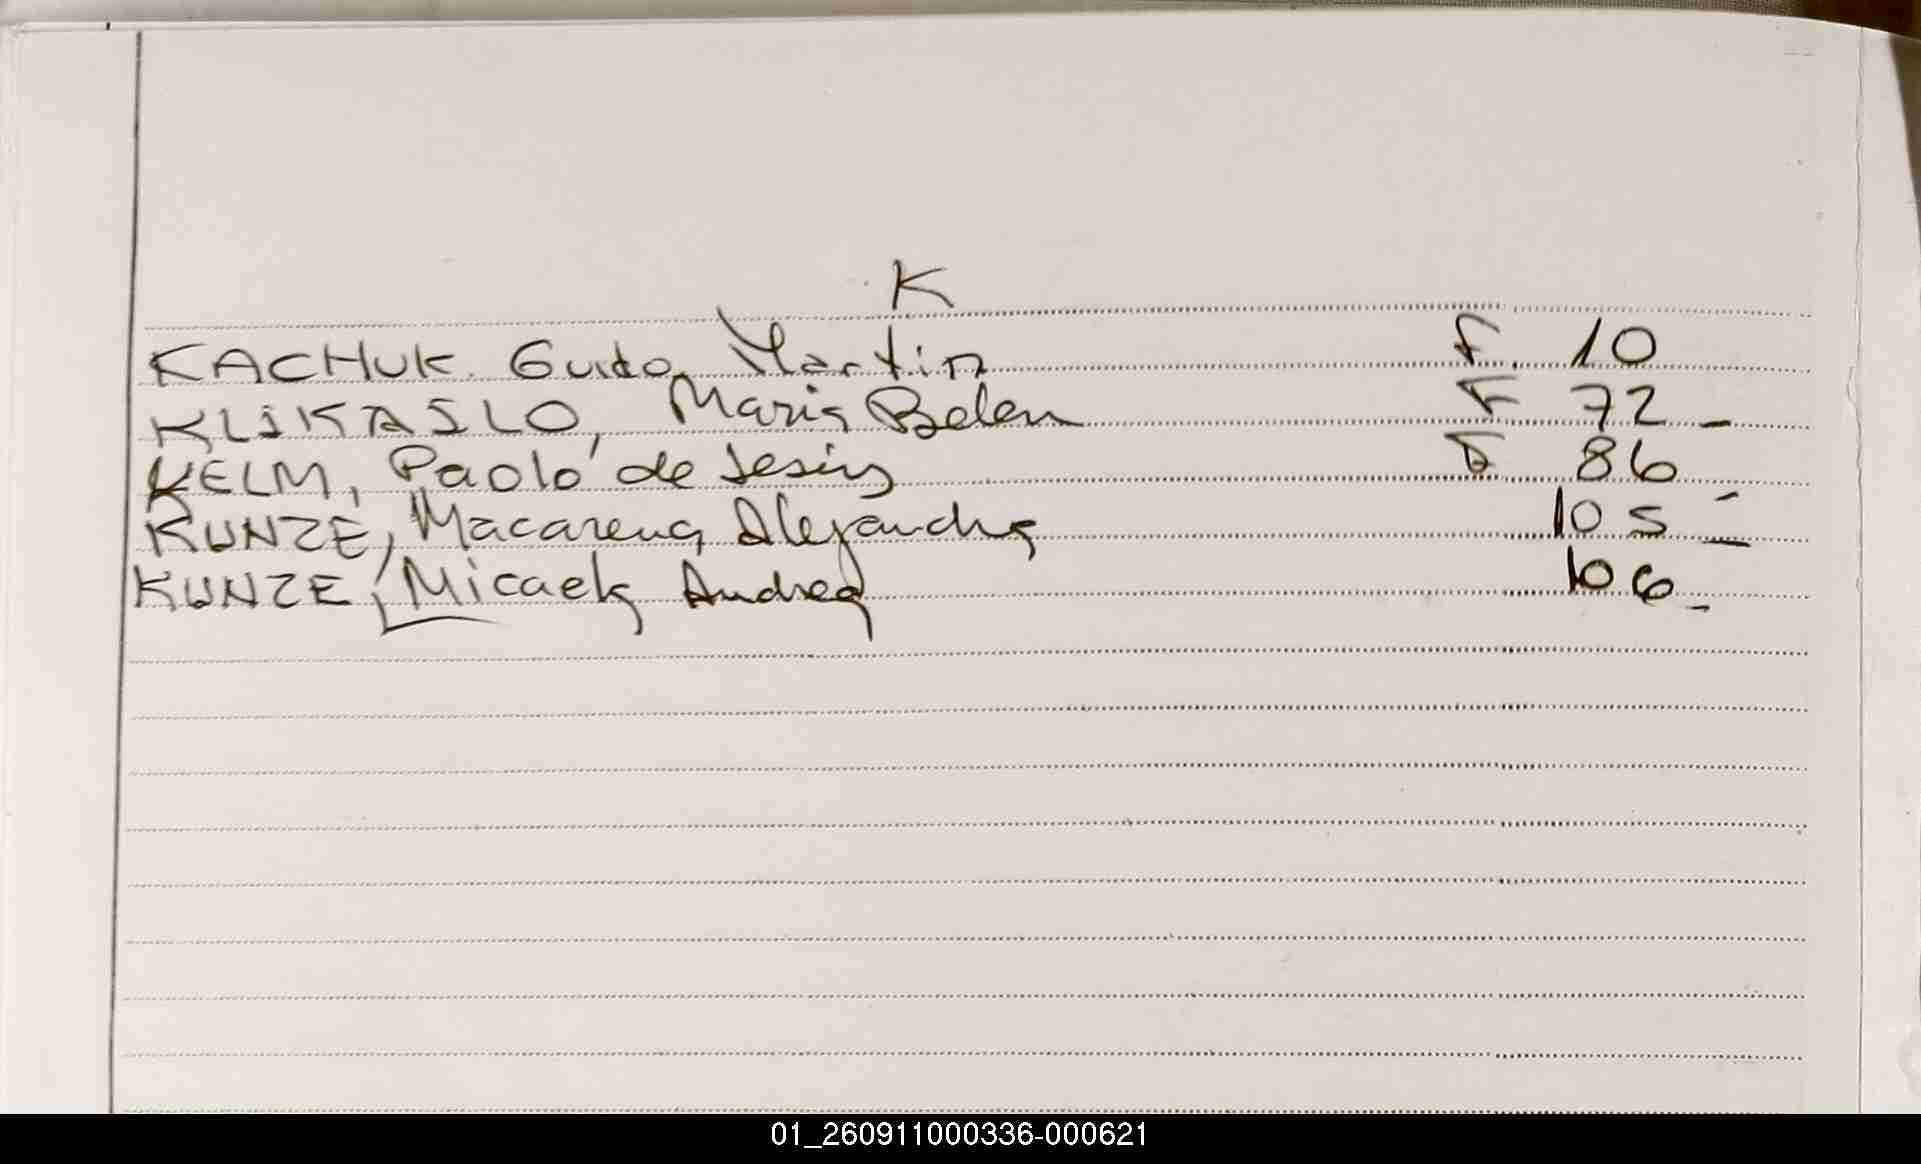 K
KACHUK. Guido Martin F. 10
KLIKASLO, Maria Belen F 72_
KELM, Paolo de Jesús F 86
KUNZE, Macarena Alejandra 105_
KUNZE, Micaela Andrea 106_
01_260911000336-000621